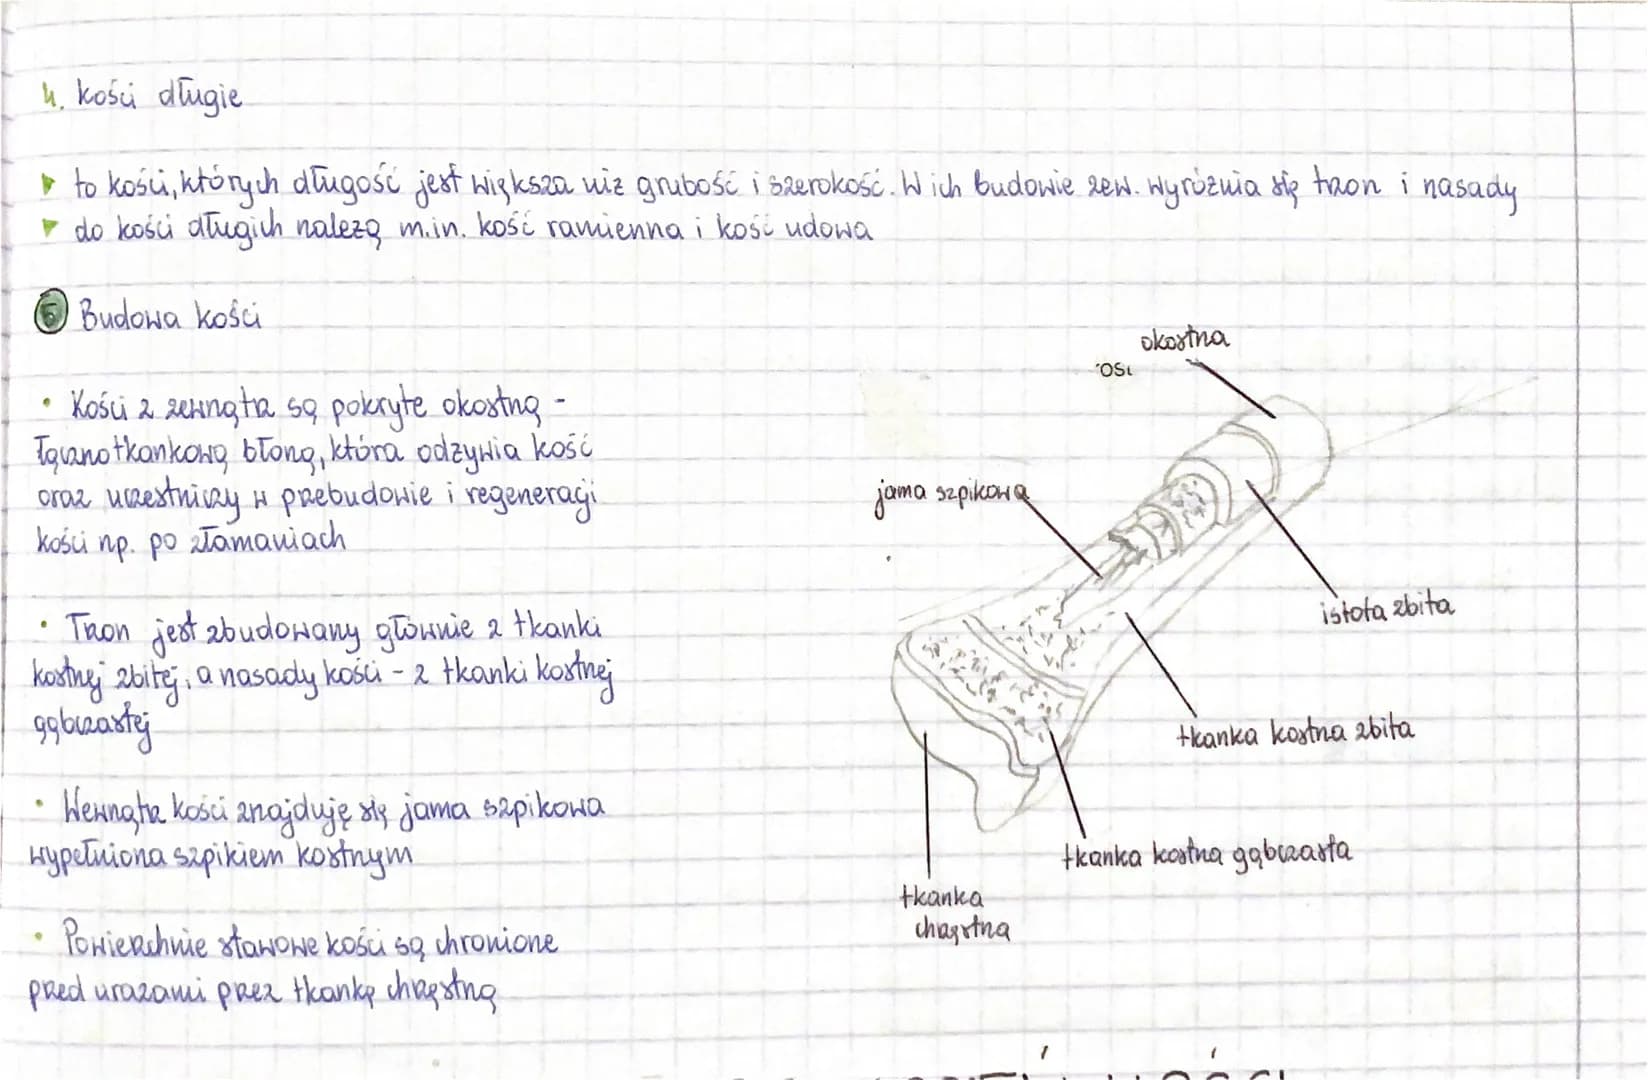 4. kości długie
to kości, których długość jest większa niż grubość i szerokość. W ich budowie zew. wyróżnia się trzon i nasady
do kości długich należą m.in. kość ramienna i kość udowa
5 Budowa kości
• Kości z zewnątrz są pokryte okostną -
łącznotkankową błoną, która odżywia kość
oraz uczestniczy w przebudowie i regeneracji
kości np. po złamaniach
• Trzon jest zbudowany głównie z tkanki
kostnej zbitej, a nasady kości - z tkanki kostnej
gąbczastej
• Wewnątrz kości znajduję się jama szpikowa
wypełniona szpikiem kostnym
• Powierzchnie stawowe kości są chronione
przed urazami przez tkankę chrzęstną
okostna
jama szpikowa
istota zbita
tkanka kostna zbita
tkanka kostna gąbczasta
tkanka
chrzęstna